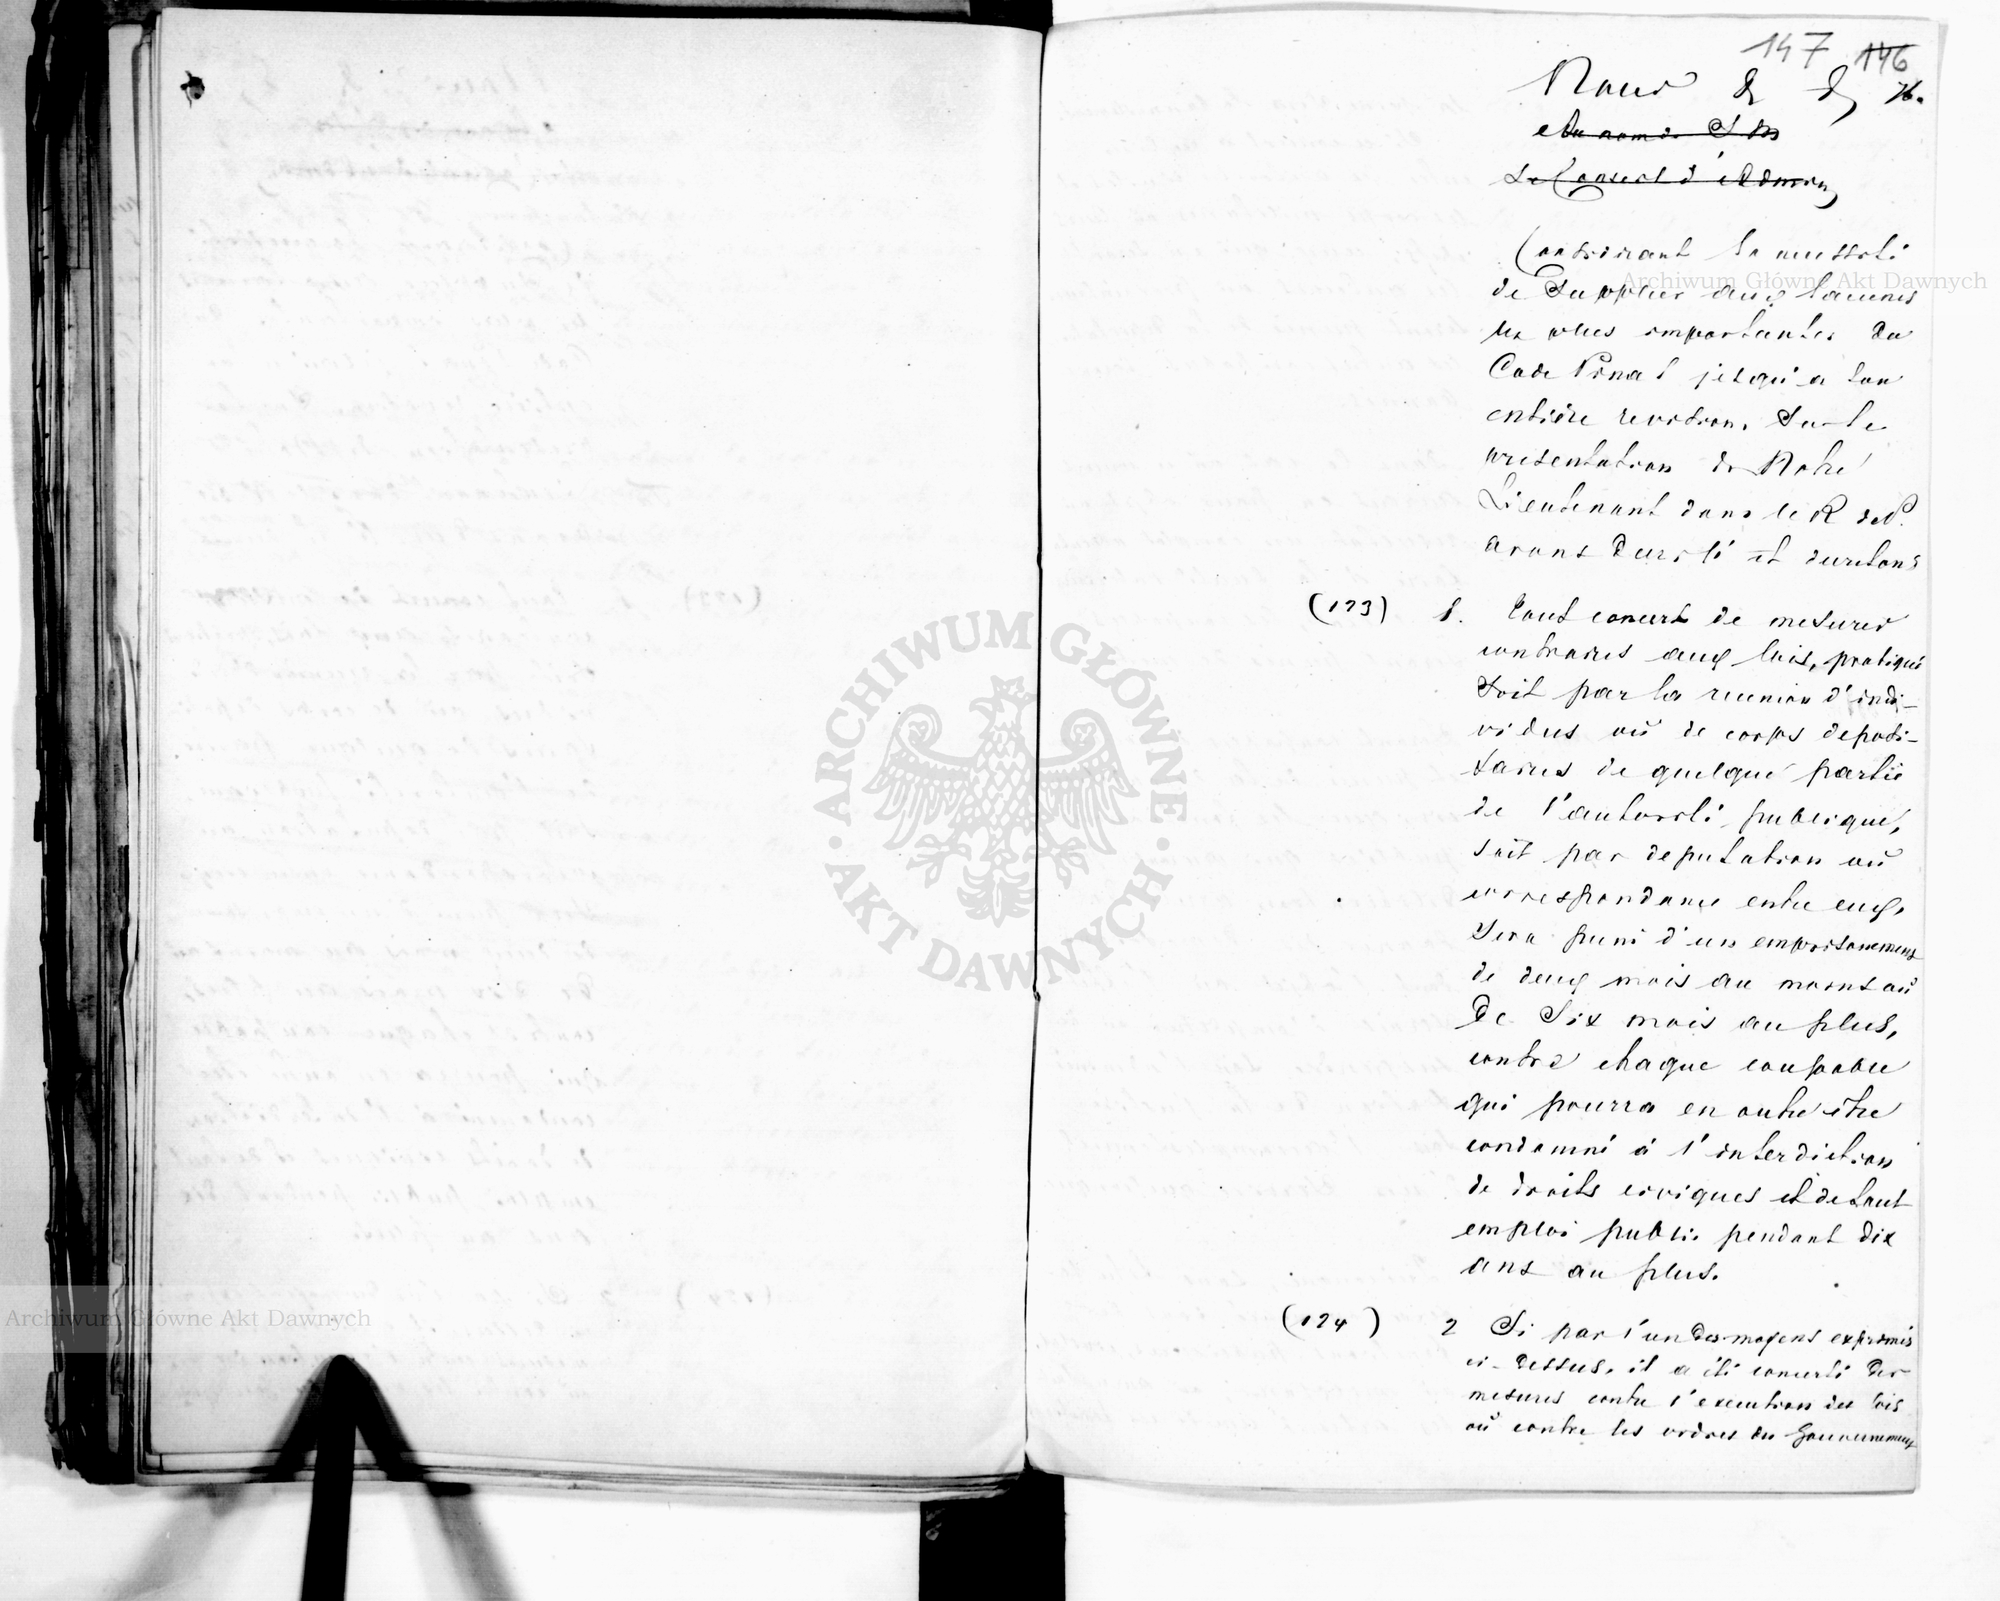 147 146
Nous & & 76.
Au nom de S M
Le Conseil d'Admin
Considerant la necessité
de Suppleer aux lacunes
les plus importantes du
Code Penal jusqu'a son
entière revision, Sur la
presentation de Notre
Lieutenant dans le R de P.
avons decreté et decretons
(123) 1. Tout concert de mesures
contraires aux lois, pratiqué
soit par la reunion d'indi-
vidus où de corps deposi-
taires de quelque partie
de l'autorité publique,
soit par deputation où
correspondance entre eux,
Sera puni d'un emprisonnement
de deux mois au moins où
de Six mois au plus,
contre chaque coupable
qui pourra en outre être
condamné à l'interdiction
de droits civiques et de tout
emploi public pendant dix
ans au plus.
(124) 2 Si par l'un des moyens exprimés
ci-dessus, il a été concerté des
mesures contre l'execution des lois
où contre les ordres du Gouvernement
Archiwum Główne Akt Dawnych
Archiwum Główne Akt Dawnych
ARCHIWUM GŁÓWNE AKT DAWNYCH